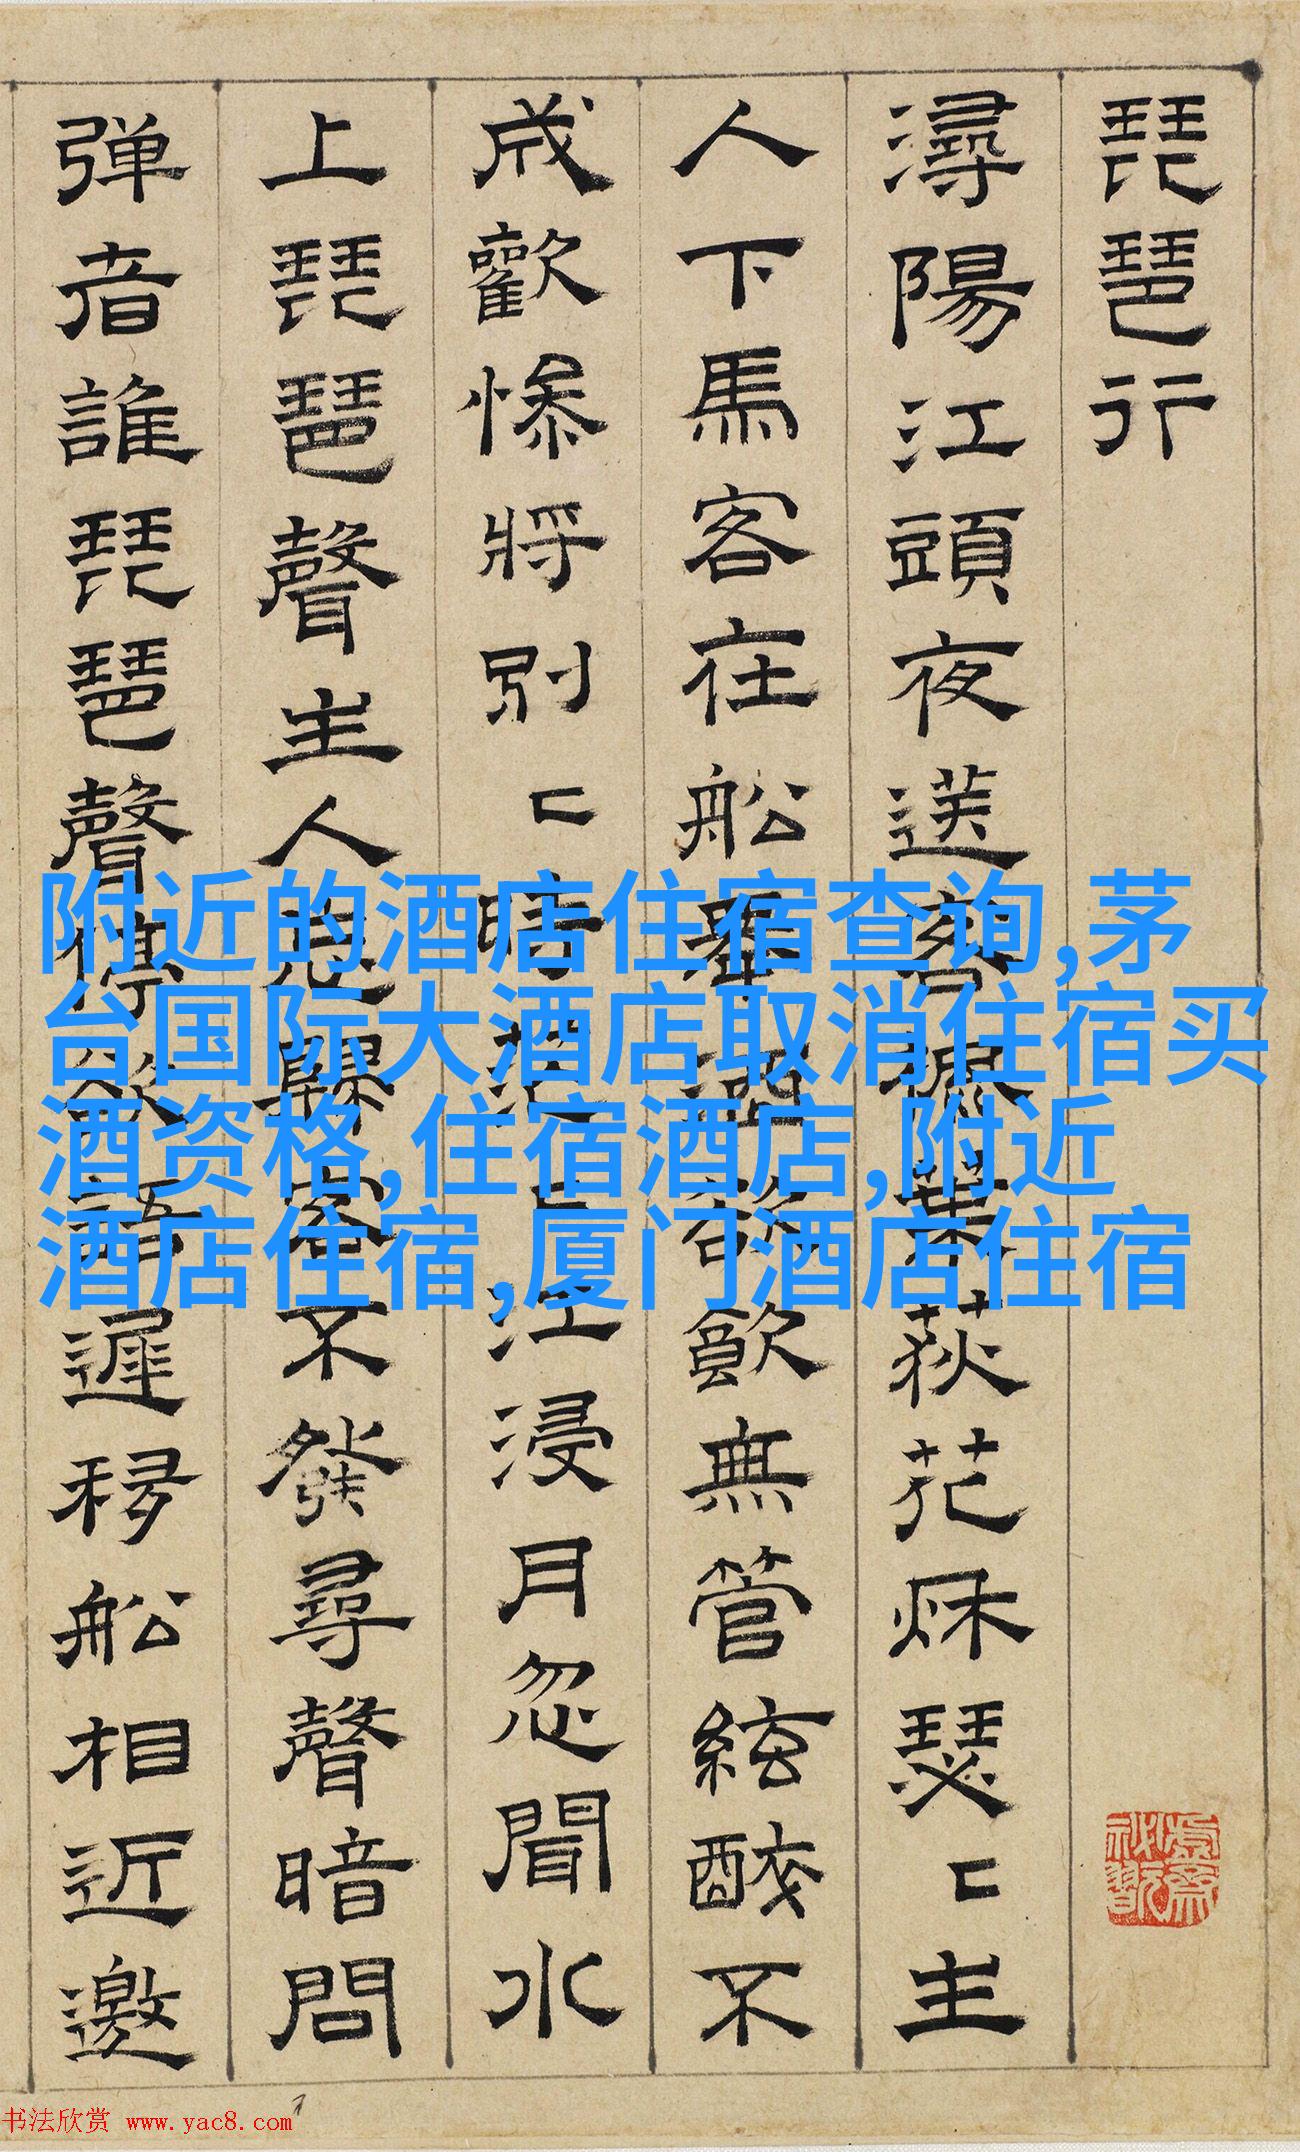 琵琶行
潯陽江頭夜送客楓葉荻花秌瑟〻主
人下馬客在船舉酒欲飲無管絃醉不
成歡慘將別〻時茫〻江浸月忽聞水
上琵琶聲主人忘歸客不發尋聲暗問
弹者誰琵琶聲停欲語遲移船相近邀
附近的酒店住宿查询,茅
台国际大酒店取消住宿买
酒资格,住宿酒店,附近
酒店住宿,厦门酒店住宿
书法欣赏 www.yac8.com